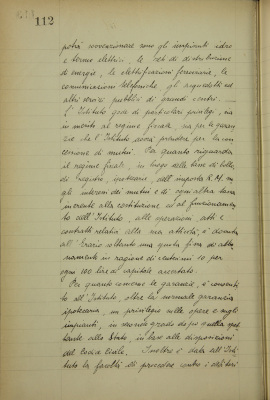 112
potrà sovvenzionare sono gli impianti idro
e termo elettrici, le reti di distribuzione
di energia, le elettrificazioni ferroviarie, le
comunicazioni telefoniche, gli acquedotti ed
altri servizi pubblici di grandi centri.
L'Istituto gode di particolari privilegi, sia
in merito al regime fiscale, sia per le garan
zie che l'Istituto dovrà prendere per la con
cessione di mutui. Per quanto riguarda
il regime fiscale, in luogo delle tasse di bollo,
di registro, ipotecarie, dell'imposta R.M. su
gli interessi dei mutui e di ogni altra tassa
inerente alla costituzione ed al funzionamen
to dell'Istituto, alle operazioni, atti e
contratti relativi alla sua attività, è dovuta
all'Erario soltanto una quota fissa di abbo
namento in ragione di centesimi 10 per
ogni 100 lire di capitale
Per quanto concerne le garanzie, è consenti
to all'Istituto, oltre la normale garanzia
ipotecaria, un privilegio sulle opere e sugli
impianti, in secondo grado dopo quello spet
tante allo Stato, in base alle disposizioni
del Codice Civile. Inoltre è data all'Isti
tuto la facoltà di procedere contro i debitori